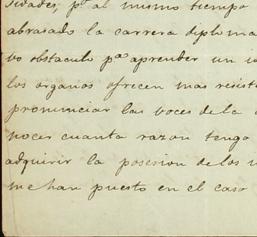 sivades, po. al mismo tiempo
abrasado la carrera diploma
vo obstaculo pa. aprender un i
los organos ofrecen mas resist
pronunciar las voces de la
nocer cuanta razon tengo
adquirir la posesion de los
me han puesto en el caso